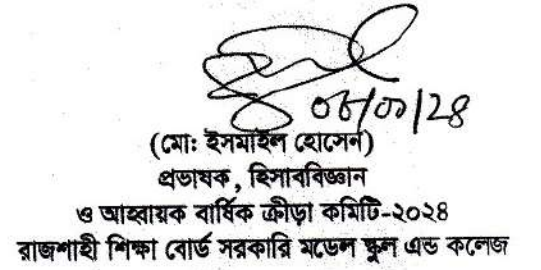 (মোঃ ইসমাইল হোসেন)
প্রভাষক, হিসাববিজ্ঞান
ও আহ্বায়ক বার্ষিক ক্রীড়া কমিটি-২০২৪
রাজশাহী শিক্ষা বোর্ড সরকারি মডেল স্কুল এন্ড কলেজ